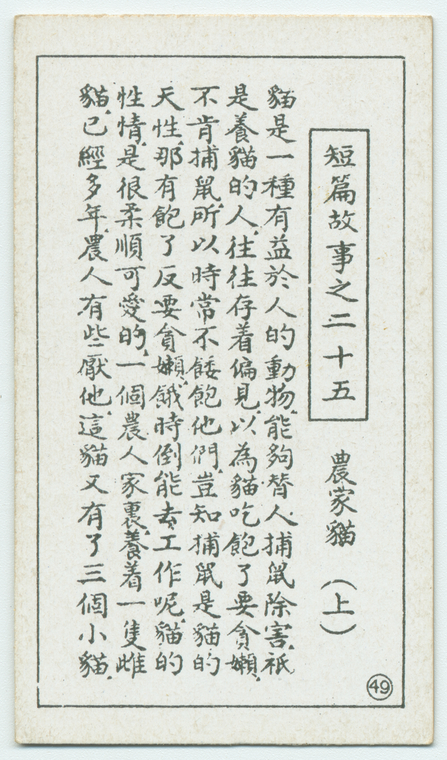 短篇故事之二十五
農家貓 (上)
貓是一種有益於人的動物,能夠替人捕鼠除害,祇
是養貓的人,往往存着偏見,以為貓吃飽了要貪嬾,
不肯捕鼠,所以時常不餧飽他們,豈知捕鼠是貓的
天性,那有飽了反要貪嬾,餓時倒能去工作呢,貓的
性情,是很柔順可愛的,一個農人家裏,養着一隻雌
貓,已經多年,農人有些厭他,這貓又有了三個小貓,
49